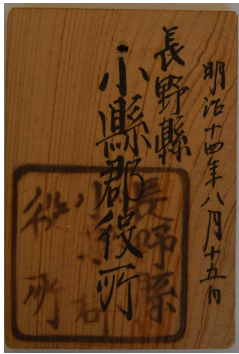 明治十四年八月十五日
長野縣
小縣郡役所
長野縣
小縣郡
役所